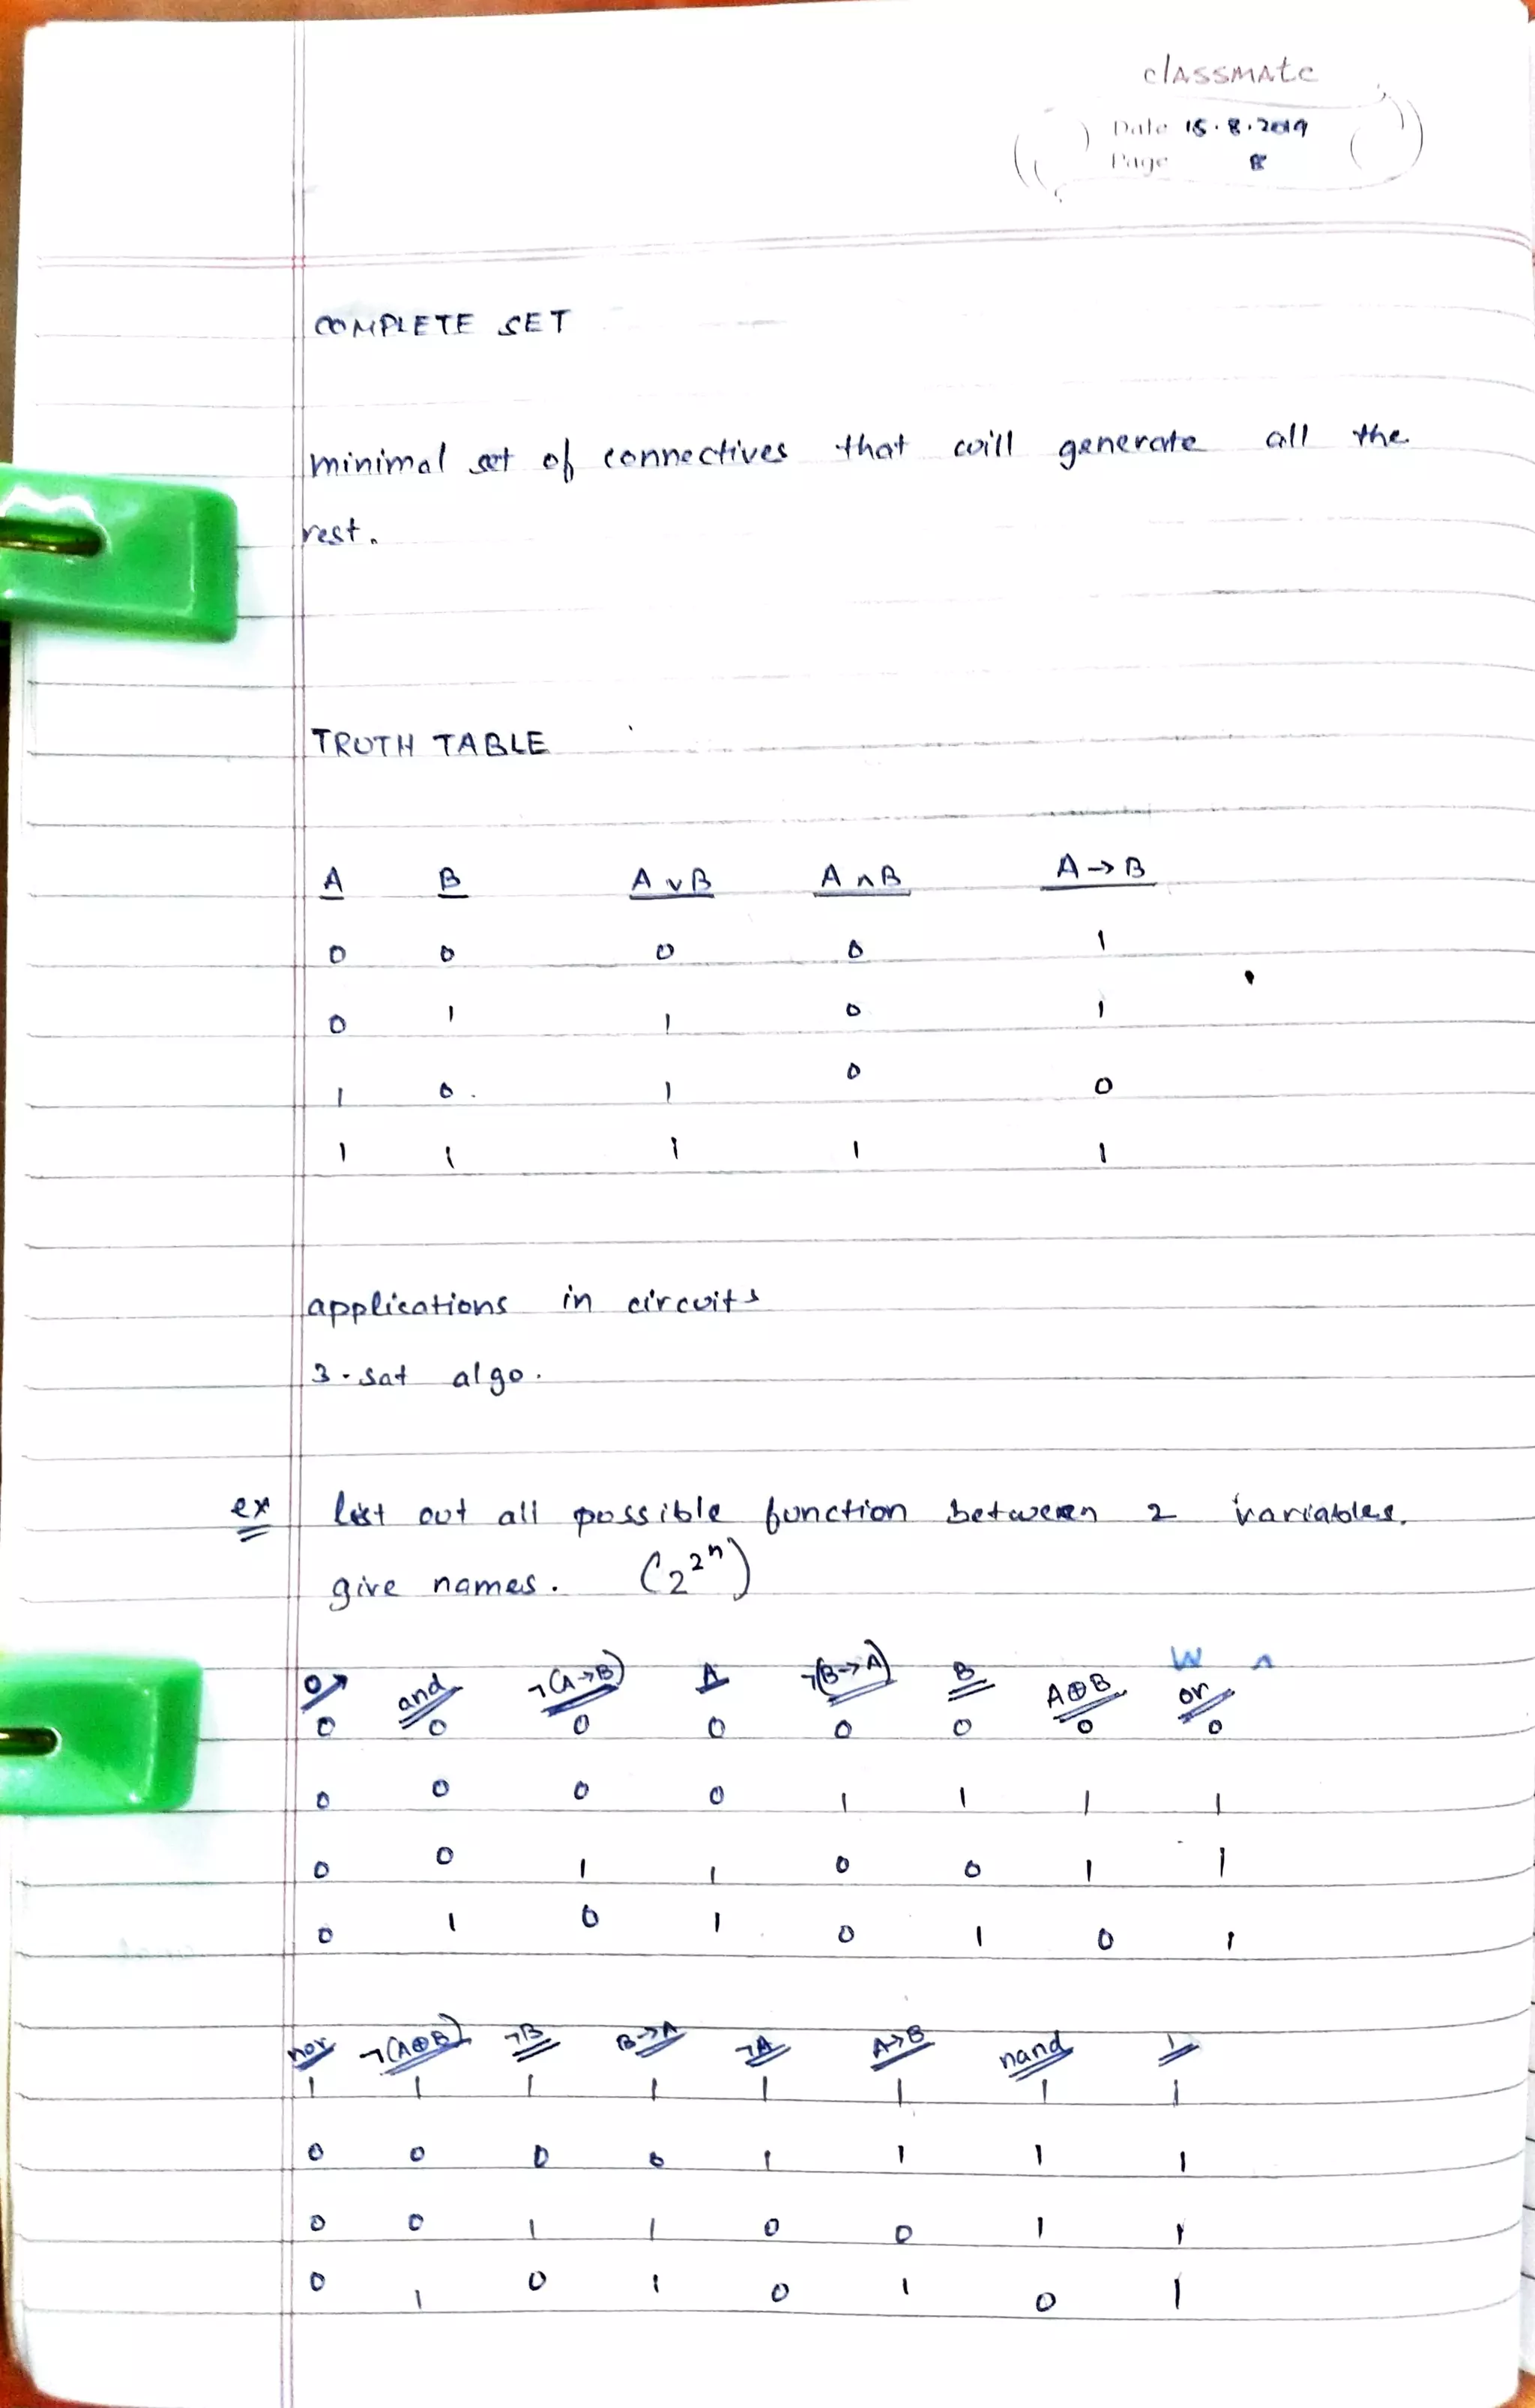 classmate
Date 15.8.2019
Page 8
COMPLETE SET
minimal set of connectives that will generate all the
rest.
TRUTH TABLE
A B A ∨ B A ∧ B A → B
0 0 0 0 1
0 1 1 0 1
1 0 1 0 0
1 1 1 1 1
applications in circuits
3-sat algo.
ex list out all possible function between 2 variables.
give names. (2^2^n)
0 and ¬(A→B) A ¬(B→A) B A⊕B or
0 0 0 0 0 0 0 0
0 0 0 0 1 1 1 1
0 0 1 1 0 0 1 1
0 1 0 1 0 1 0 1
nor ¬(A⊕B) ¬B B→A ¬A A→B nand 1
1 1 1 1 1 1 1 1
0 0 0 0 1 1 1 1
0 0 1 1 0 0 1 1
0 1 0 1 0 1 0 1